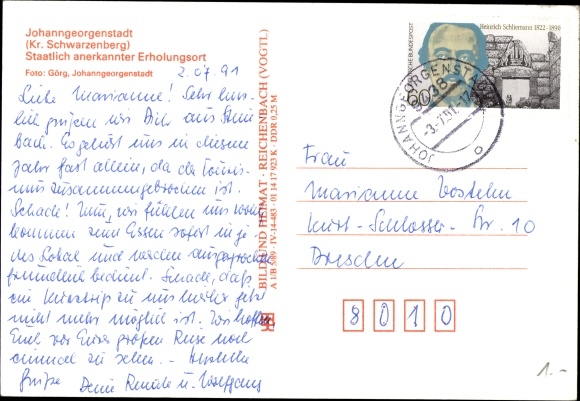 Johanngeorgenstadt
(Kr. Schwarzenberg)
Staatlich anerkannter Erholungsort
Foto: Görg, Johanngeorgenstadt
2.07.91
Liebe Marianne! Sehr herz-
lich grüßen wir Dich aus
bach. Es gehört uns in diesem
Jahr fast allein, da der Touris-
mus zusammengebrochen ist.
Schade! Nun, wir fühlen uns wohl
kommen zum Essen sofort in je-
des Lokal und werden ausgesprochen
freundlich bedient. Schade, daß
ein Kurztrip zu uns hierher jetzt
nicht mehr möglich ist. Wir hoffen
Euch vor Eurer großen Reise noch
einmal zu sehen. - Herzliche
Grüße Deine Renate u. Wolfgang
BILD UND HEIMAT · REICHENBACH (VOGTL)
A 1/B 589 · IV-14-483 · 01 14 17 923 K · DDR 0,25 M
DEUTSCHE BUNDESPOST
60
Heinrich Schliemann 1822-1890
JOHANNGEORGENSTADT
-3.7.91-17
Frau
Marianne
Kurt-Schlosser-Str. 10
Dresden
8 0 1 0
1.-